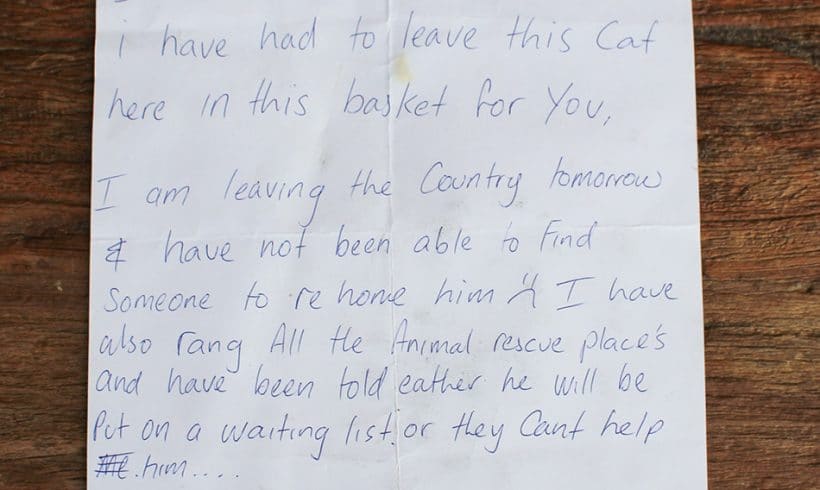 i have had to leave this Cat
here in this basket for You,
I am leaving the Country tomorrow
& have not been able to Find
Someone to re home him :( I have
also rang All the Animal rescue place's
and have been told eather he will be
Put on a waiting list or they Cant help
him....